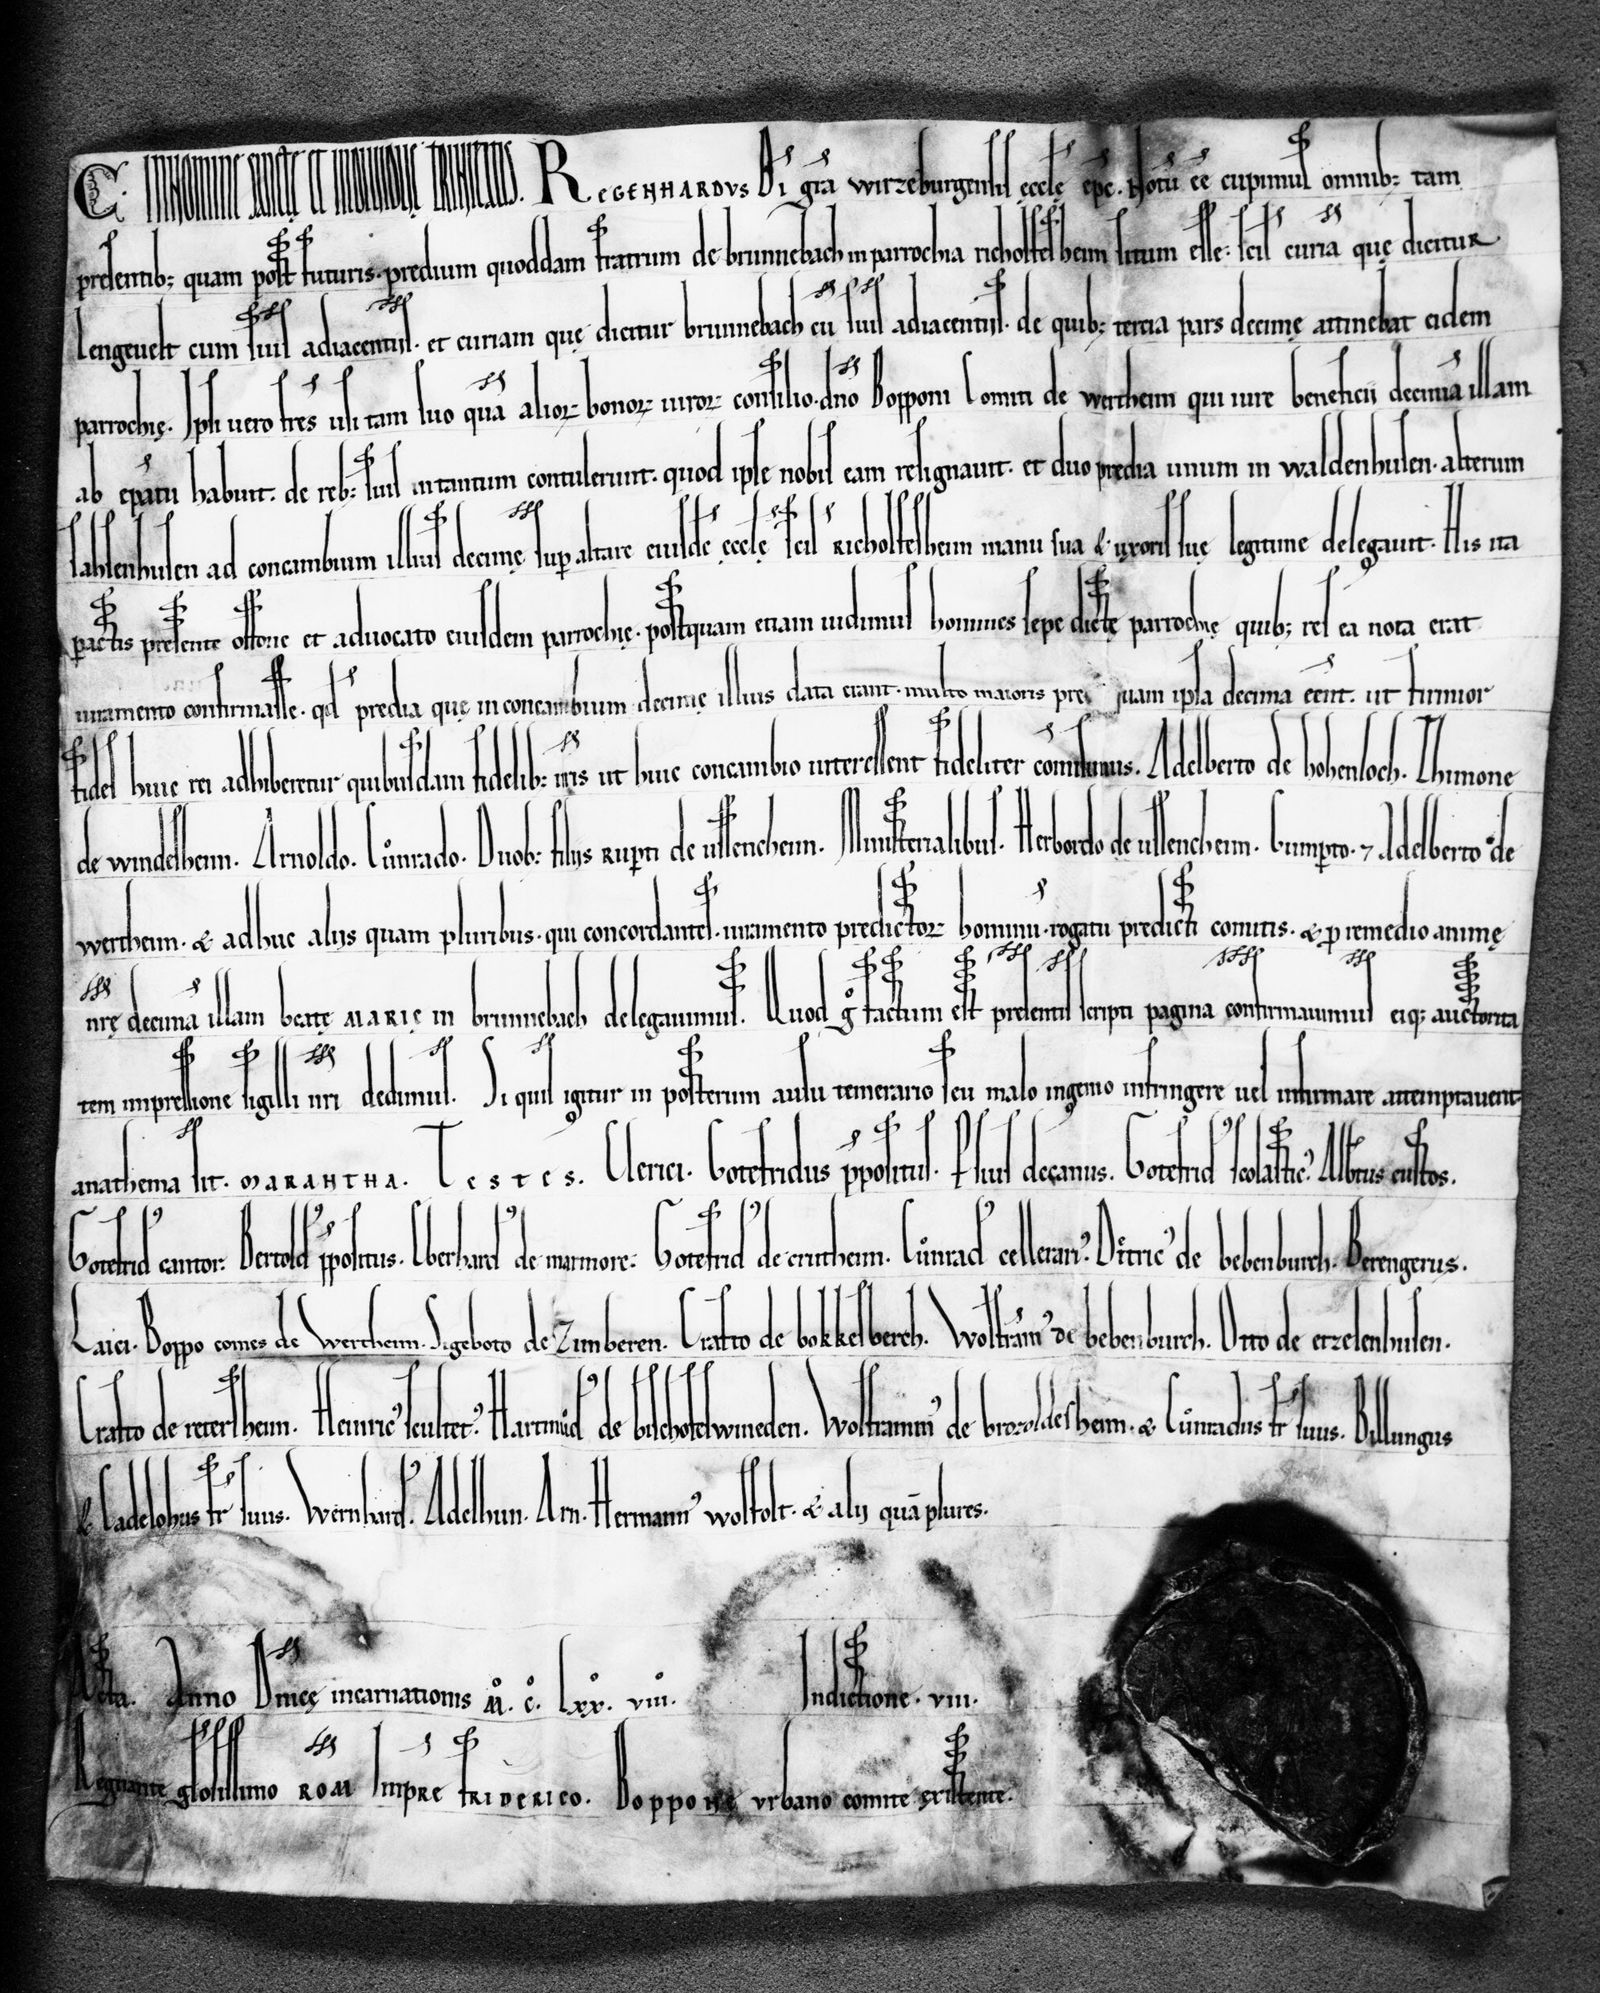 C. IN NOMINE SANCTĘ ET INDIVIDUĘ TRINITATIS. REGENHARDVS Di gr̄a wirzeburgensis ęcclę ep̄c. Notū eē cupimus omnib; tam
presentib; quam post futuris. predium quoddam fratrum de brunnebach in parrochia richolfesheim situm esse. scil curiā quę dicitur
Lengevelt cum suis adiacentiis. et curiam quę dicitur brunnebach cū suis adiacentiis. de quib; tercia pars decimę attinebat eidem
parrochię. Ipsi uero fr̄es usi tam suo quā alioꝝ bonoꝝ uiroꝝ consilio. dn̄o Bopponi Comiti de wertheim qui iure beneficii decimā illam
ab ep̄atu habuit. de reb; suis in tantum contulerunt. quod ipse nobis eam resignauit. et duo predia unum in waldenhusen. alterum
sahsenhusen ad concambium illius decimę sup altare eiusdē ęcclę scil Richolfesheim manu sua & uxoris suę legitime delegauit. His ita
pactis presente Ottone et aduocato eiusdem parrochię. postquam etiam uidimus homines sepe dictę parrochię quib; res ea nota erat
iuramento confirmasse. qd̄ predia quę in concambium decimę illius data erant. multo maioris pre quam ipsa decima eēnt. ut firmior
fides huic rei adhiberetur quibusdam fidelib; nr̄is ut huic concambio interessent fideliter cōmisimus. Adelberto de hohenloch. Thimone
de windesheim. Arnoldo. Cůnrado. Duob; filiis Rup̱ti de uffencheim. Ministerialibus. Herbordo de uffencheim. Gump̱to. ⁊ Adelberto de
wertheim. & adhuc aliis quam pluribus. qui concordantes. iuramento predictoꝝ hominū. rogatu predicti comitis. & p̱ remedio animę
nr̄ę decimā illam beatę MARIĘ in brunnebach delegauimus. Quod gͦ factum est presentis scripti pagina confirmauimus eiq; auctorita
tem impressione sigilli nr̄i dedimus. Si quis igitur in posterum ausu temerario seu malo ingenio infringere uel infirmare attemptauerit.
anathema sit. MARANTHA. Testes. Clerici. Gotefridus p̱positus. decanus. Gotefrid᾽ scolastic᾽. Alb̄tus custos.
Gotefrid᾽ cantor. Bertold᾽ p̱positus. Eberhard᾽ de marmore. Gotefrid᾽ de crutheim. Cůnrad᾽ cellerari᾽. Ditric᾽ de bebenburch. Berengerus.
Laici. Boppo comes de Wertheim. Sigeboto de Zimberen. Crafto de bokkesberch. Wolfram᾽ de bebenburch. Otto de etzelenhusen.
Crafto de retersheim. Heinric᾽ scultet᾽. Hartmůd᾽ de bischofeswineden. Wolframm᾽ de brozoldesheim. & Cůnradus fr̄ suus. Billungus
& Cadelohus fr̄ suus. Wernhard᾽. Adelhun. Arn. Hermann᾽ wolfolt. & alii quā plures.
Acta. Anno Dn̄icę incarnationis M̊. C̊. Lxx̊. viii̊. Indictione. viii.
Regnante glosissimo ROM Imp̄RE FRIDERICO. BOPPONE vrbano comite ęxistente.